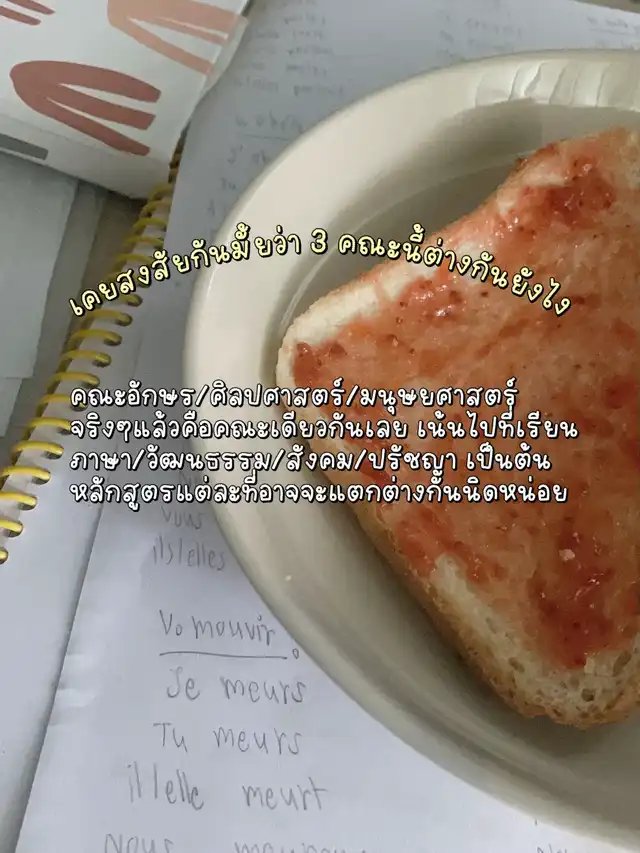 เคยสงสัยกันมั้ยว่า 3 คณะนี้ต่างกันยังไง
คณะอักษร/ศิลปศาสตร์/มนุษยศาสตร์
จริงๆแล้วคือคณะเดียวกันเลย เน้นไปที่เรียน
ภาษา/วัฒนธรรม/สังคม/ปรัชญา เป็นต้น
หลักสูตรแต่ละที่อาจจะแตกต่างกันนิดหน่อย
vous
ils/elles
Vo mouvir
Je meurs
Tu meurs
il/elle meurt
Nous